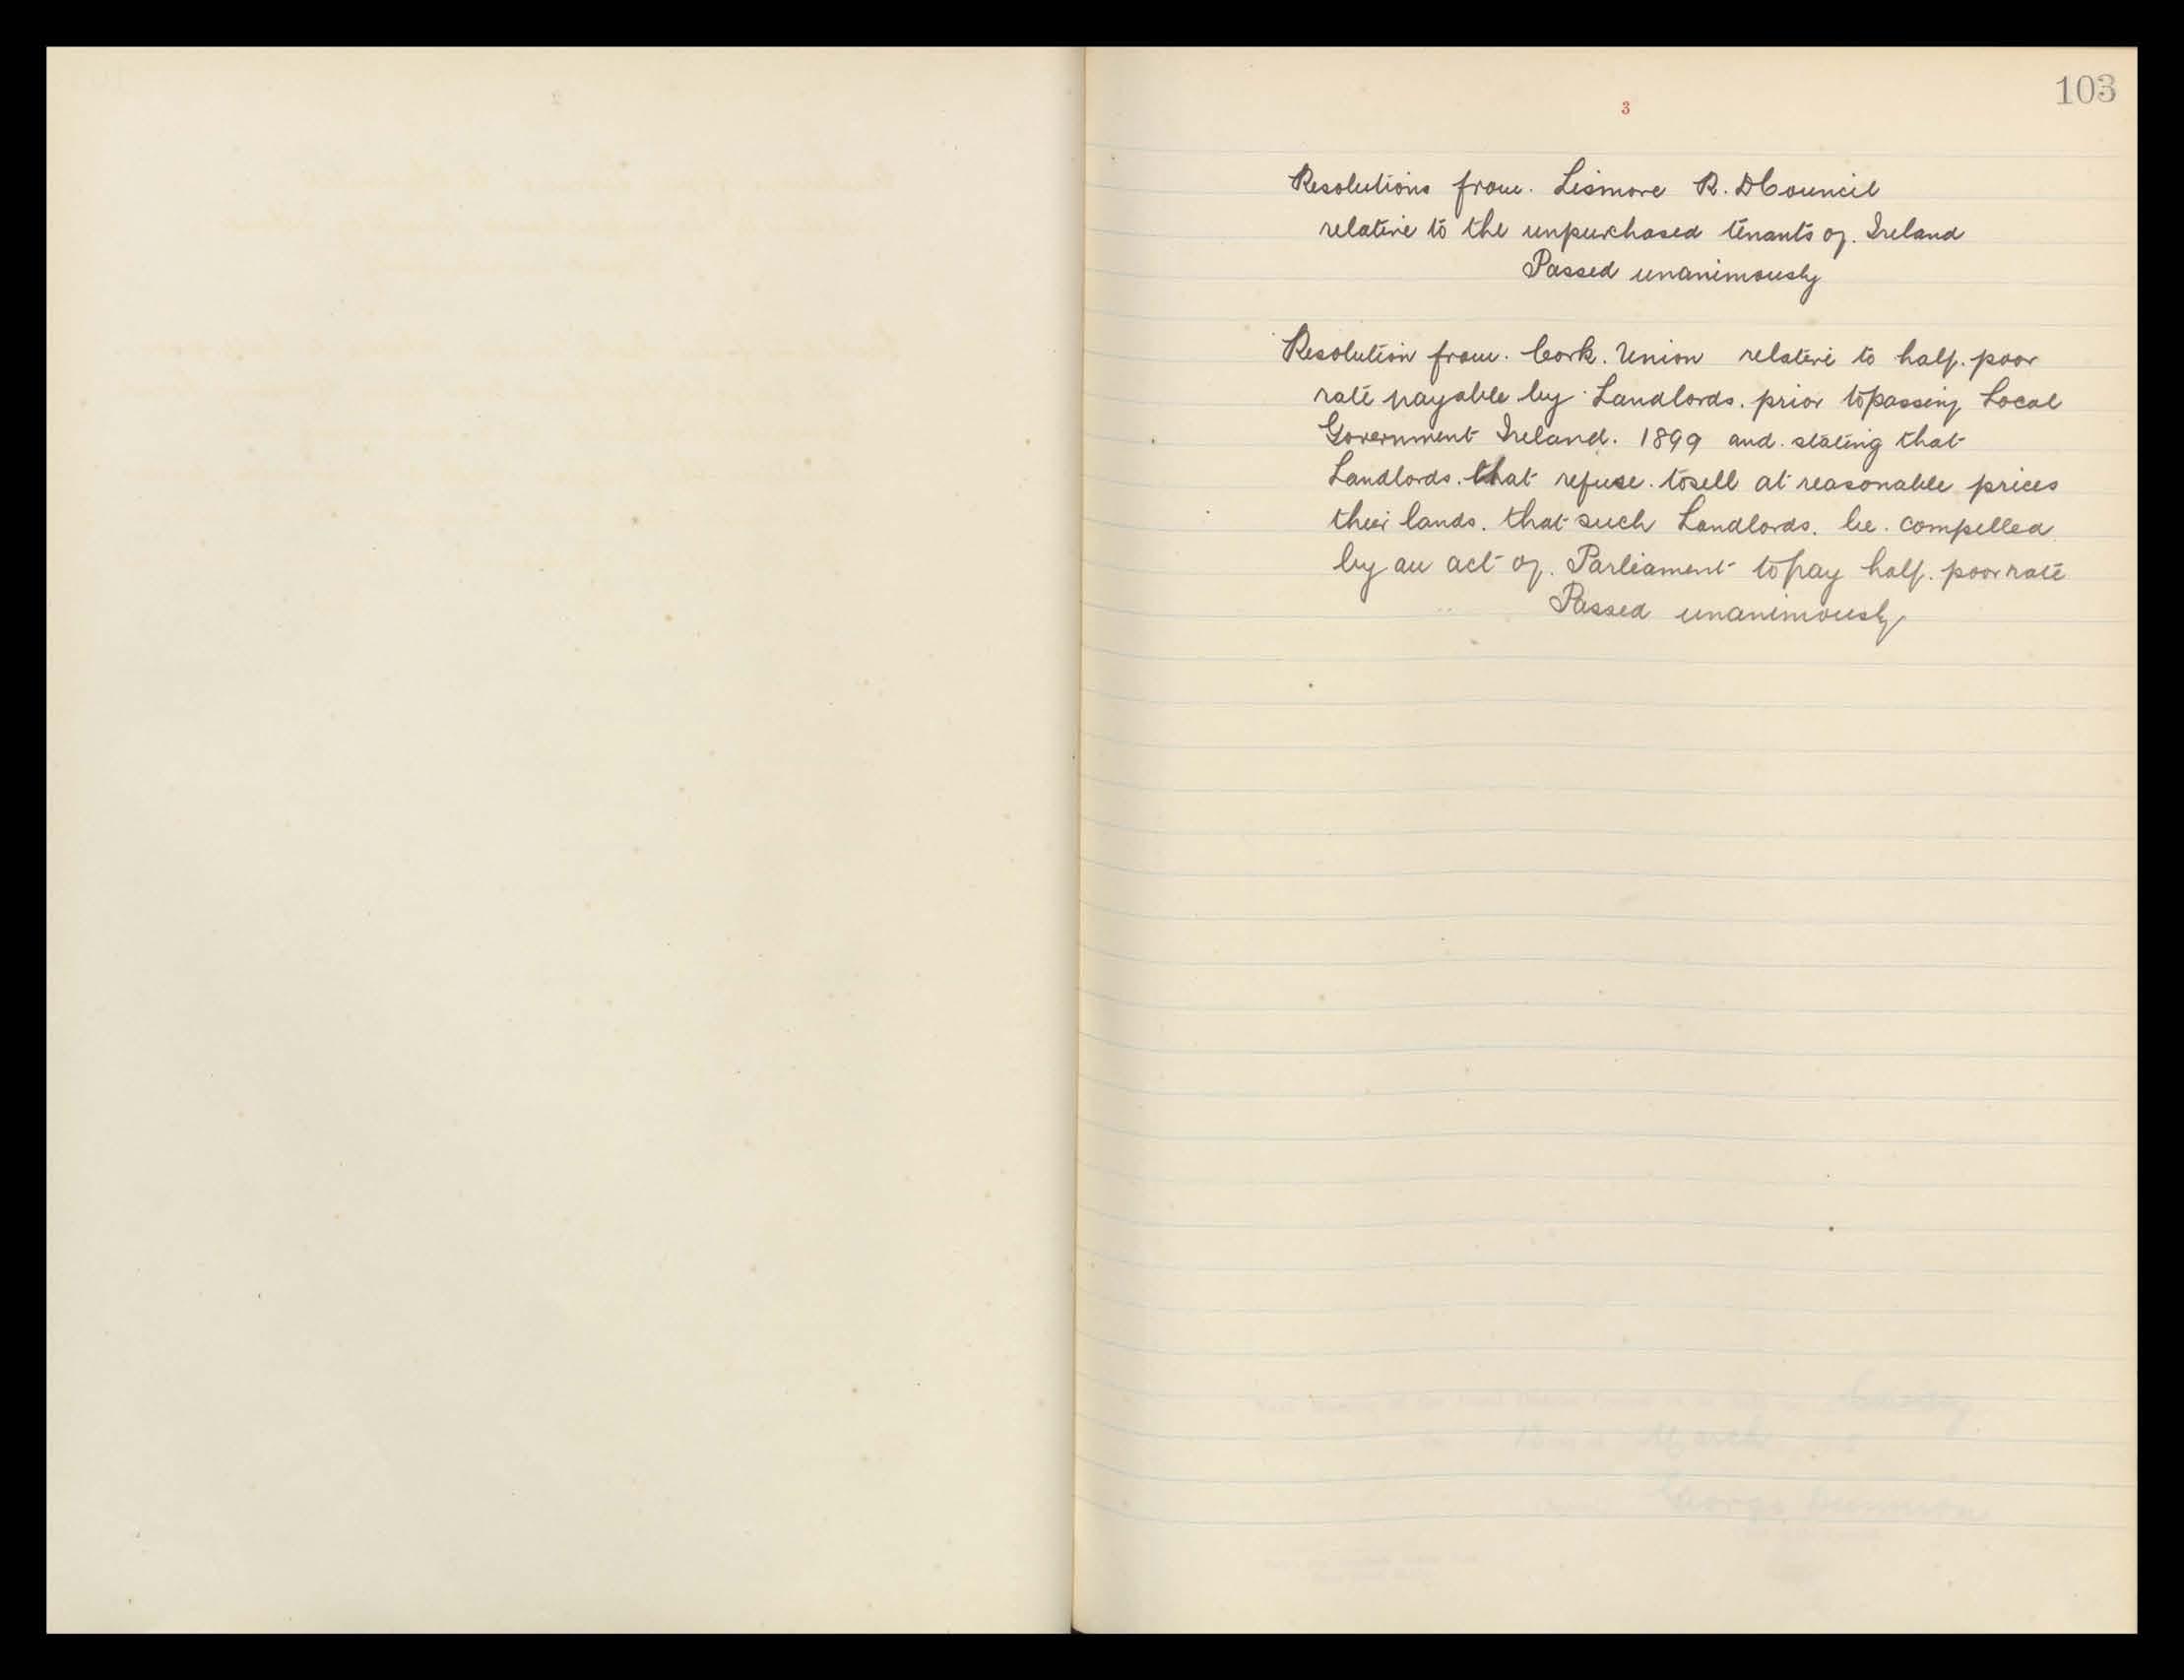 103
3
Resolutions from. Lismore R. DCouncil
relative to the unpurchased tenants of. Ireland
Passed unanimously
Resolution from. Cork. Union relative to half. poor
rate payable by Landlords. prior to passing Local
Government Ireland. 1899 and. stating that
Landlords. that refuse. to sell at reasonable prices
their lands. that such Landlords. be. compelled
by an act of. Parliament to pay half. poor rate
Passed unanimously
March